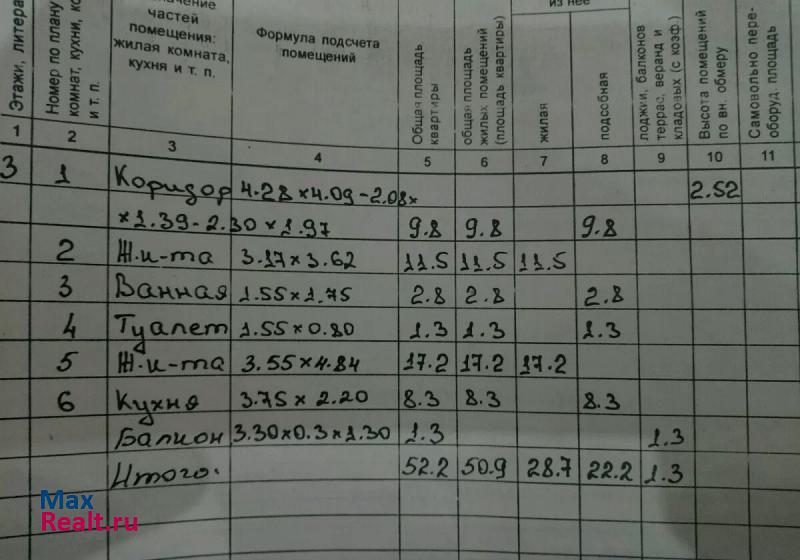 Этажи, литера
Номер по плану комнат, кухни, ко и т. п.
частей помещения: жилая комната, кухня и т. п.
Формула подсчета помещений
Общая площадь квартиры
общая площадь жилых помещений (площадь квартиры)
из нее
жилая
подсобная
лоджий, балконов террас, веранд и кладовых (с коэф.)
Высота помещений по вн. обмеру
Самовольно пере- оборуд. площадь
1 2 3 4 5 6 7 8 9 10 11
3 1 Коридор 4.28×4.09-2.08× 2.52
×1.39-2.30×1.97 9.8 9.8 9.8
2 Ж.к-та 3.17×3.62 11.5 11.5 11.5
3 Ванная 1.55×1.75 2.8 2.8 2.8
4 Туалет 1.55×0.80 1.3 1.3 1.3
5 Ж.к-та 3.55×4.84 17.2 17.2 17.2
6 Кухня 3.75×2.20 8.3 8.3 8.3
Балкон 3.30×0.3×1.30 1.3 1.3
Итого: 52.2 50.9 28.7 22.2 1.3
Max
Realt.ru